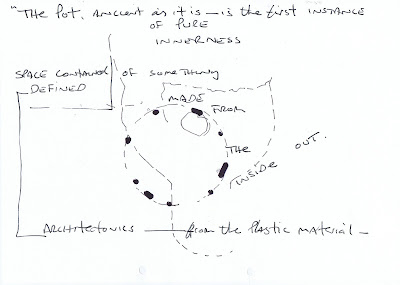 "The Pot, ANCIENT as it is — is the first INSTANCE
OF PURE
INNERNESS
SPACE CONTAINED OF SOMETHING
DEFINED
MADE
FROM
THE
INSIDE OUT.
ARCHITETONICS — from the Plastic Material —